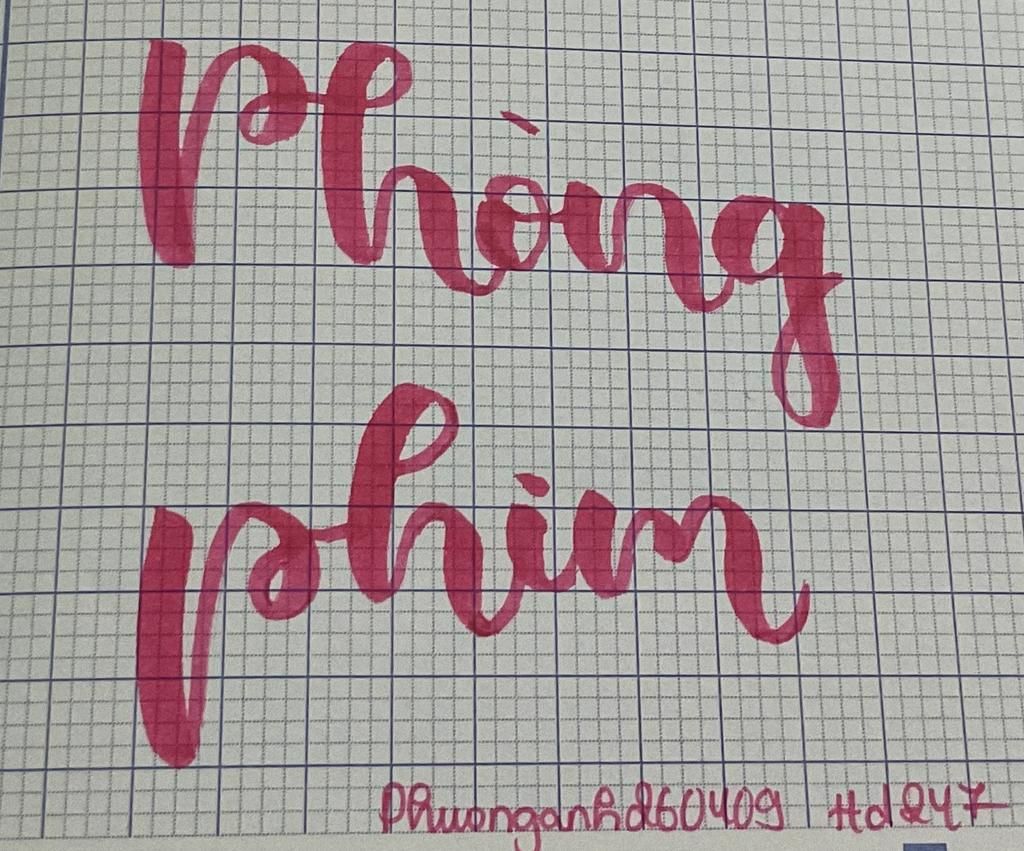 Phòng
phim
Phuonganhd260409 Hd247